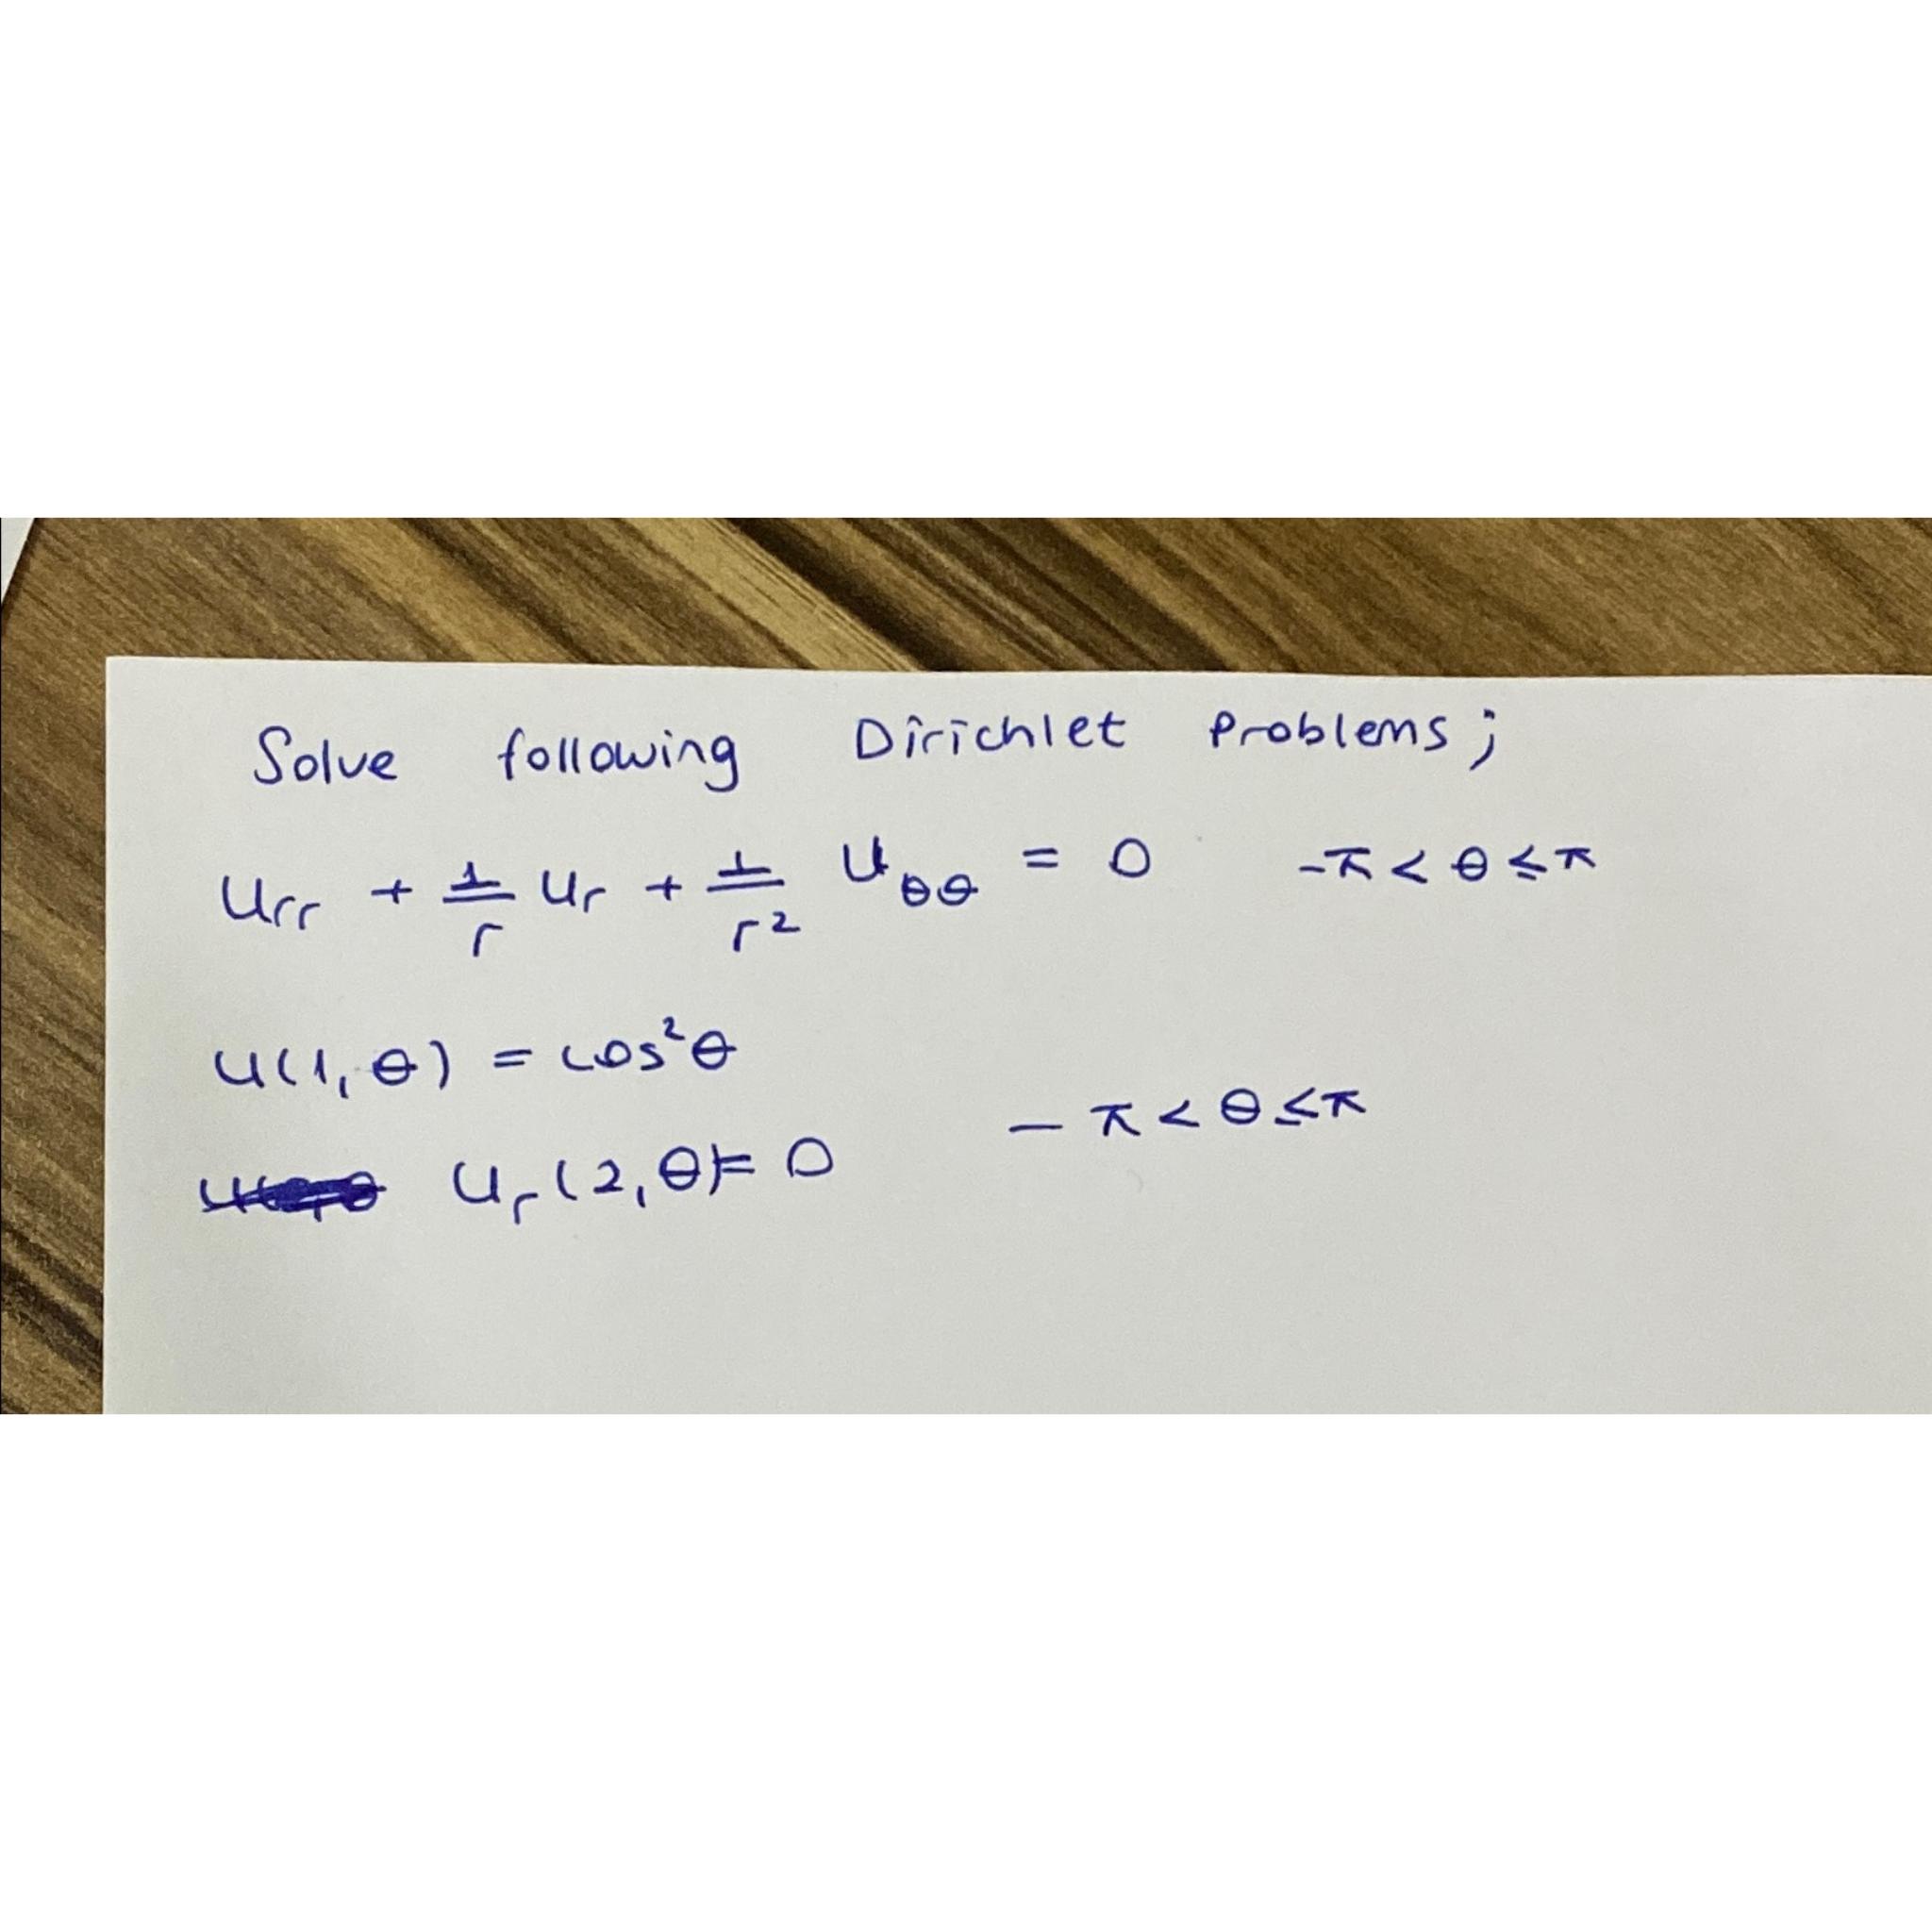 Solve following Dirichlet Problems;
u_rr + 1/r u_r + 1/r² u_θθ = 0   -π < θ ≤ π
u(1, θ) = cos²θ
- π < θ ≤ π
u_r(2, θ) = 0